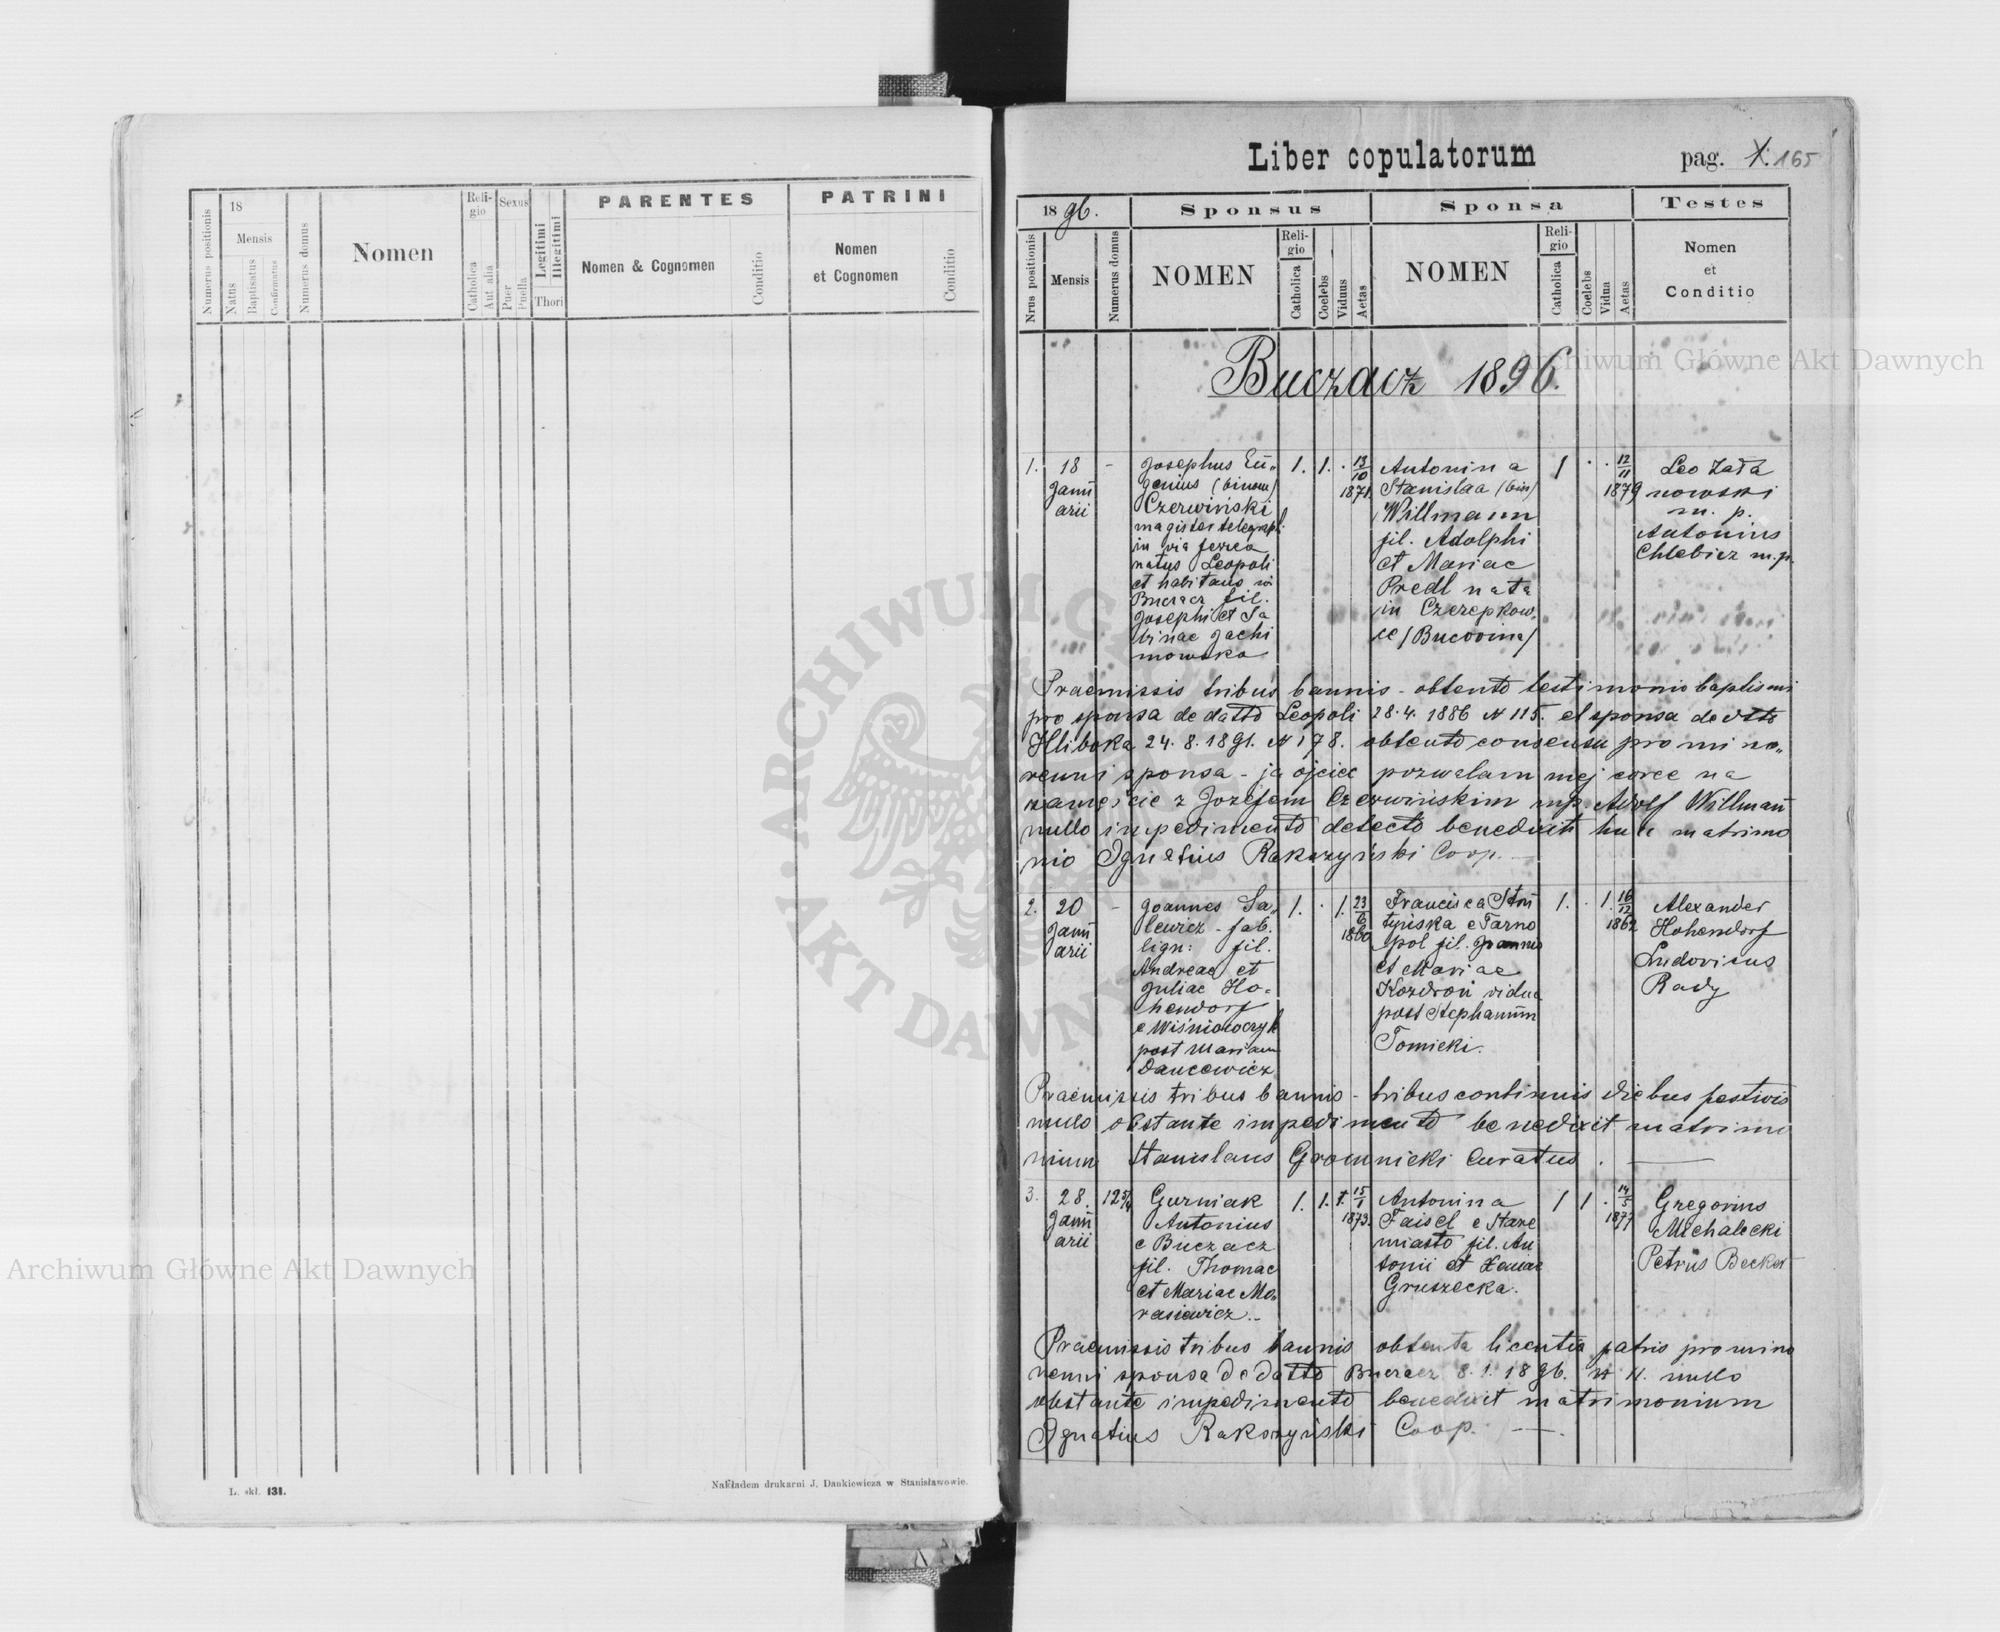 Numerus positionis
18
Mensis
Natus
Baptisatus
Confirmatus
Numerus domus
Nomen
Reli-
gio
Catholica
Aut alia
Sexus
Puer
Puella
Legitimi
Illegitimi
Thori
PARENTES
Nomen & Cognomen
Conditio
PATRINI
Nomen
et Cognomen
Conditio
L. skł. 131.
Nakładem drukarni J. Dankiewicza w Stanisławowie.
Liber copulatorum
pag. 165
1896.
Sponsus
Sponsa
Testes
Nrus positionis
Mensis
Numerus domus
NOMEN
Reli-
gio
Catholica
Coelebs
Viduus
Aetas
NOMEN
Reli-
gio
Catholica
Coelebs
Vidua
Aetas
Nomen
et
Conditio
Buczacz 1896.
1.
18
Janu
arii
-
Josephus Eu-
genius (binom)
Czerwiński
magister telegraph.
in via ferrea
natus Leopoli
et habitans in
Buczacz fil.
Josephi et Sa
binae Jachi
mowska
1.
1.
13
10
1871.
Antonina
Stanislaa (bin)
Willmann
fil. Adolphi
et Mariae
Predl nata
in Czerepkow-
ce (Bucovina)
1
12
11
1879
Leo Zała
nowski
m. p.
Antonius
Chlebicz m.p.
Praemissis tribus bannis - obtento testimonio baptismi
pro sponsa de datto Leopoli 28.4.1886 N 115. et sponsa de dtto
Hliboka 24.8.1891. N 178. obtento consensu pro mino-
renni sponsa - ja ojciec pozwalam mej corce na
zamęście z Jozefem Czerwińskim mp. Adolf Willmann
nullo impedimento detecto benedixit huic matrimo
nio Ignatius Rakszyński Coop.
2.
20
Janu
arii
-
Joannes Sa-
lewicz - fab.
lign: fil.
Andreae et
Juliae Ho-
hendorf
e Wiśniowczyk
post Mariam
Dancewicz
1.
1.
23
6
1860
Francisca
e Tarno
pol fil. Joannis
et Mariae
Kozdroń vidua
post Stephanum
Tomicki.
1.
1.
16
12
1862
Alexander
Hohendorf
Ludovicus
Rady
Praemissis tribus bannis - tribus continuis diebus festivis
nullo obstante impedimento benedixit matrimo
nium Stanislaus Gromnicki Curatus.
3.
28
Janu
arii
Gurniak
Antonius
e Buczacz
fil. Thomae
et Mariae Mo-
rasiewicz.
1.
1.
15
1
1873.
Antonina
Faisel e Stare
miasto fil. An
tonii et Xeniae
Gruszecka.
1
1
14
5
1877
Gregorius
Michalecki
Petrus Becker
Praemissis tribus bannis obtenta licentia patris pro mino
renni sponsa de datto Buczacz 8.1.1896. N 11. nullo
obstante impedimento benedixit matrimonium
Ignatius Rakszyński Coop.
Archiwum Główne Akt Dawnych
Archiwum Główne Akt Dawnych